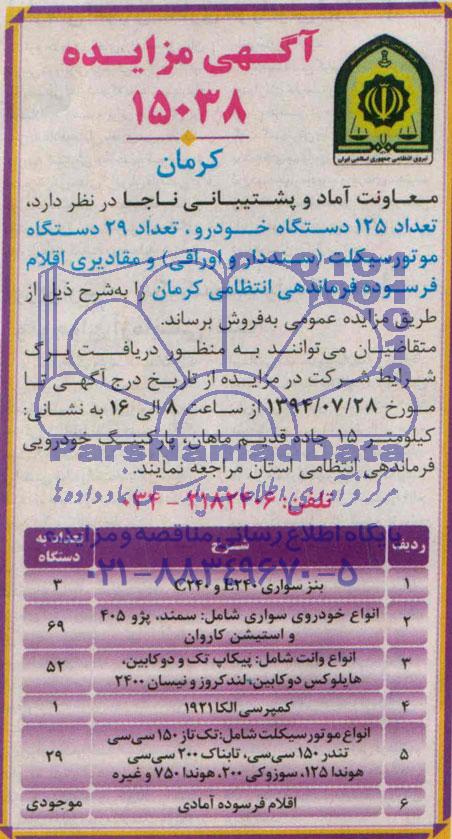 آگهی مزایده
۱۵۰۳۸
کرمان
نیروی انتظامی جمهوری اسلامی ایران
معاونت آماد و پشتیبانی ناجا در نظر دارد،
تعداد ۱۲۵ دستگاه خودرو، تعداد ۲۹ دستگاه
موتورسیکلت (سنددار و اوراقی) و مقادیری اقلام
فرسوده فرماندهی انتظامی کرمان را به‌شرح ذیل از
طریق مزایده عمومی به‌فروش برساند.
متقاضیان می‌توانند به منظور دریافت برگ
شرایط شرکت در مزایده از تاریخ درج آگهی تا
مورخ ۱۳۹۴/۰۷/۲۸ از ساعت ۸ الی ۱۶ به نشانی:
کیلومتر ۱۵ جاده قدیم ماهان، پارکینگ خودرویی
فرماندهی انتظامی استان مراجعه نمایند.
ParsNamadData
مرکز فرآوری اطلاعات پارس نماد داده ها
تلفن: ۲۱۸۲۴۰۶ - ۰۳۴
پایگاه اطلاع رسانی مناقصه و مزایده
۰۲۱-۸۸۳۴۹۶۷۰-۵
ردیف شرح تعداد به دستگاه
۱ بنز سواری E۲۴۰ و C۲۴۰ ۳
۲ انواع خودروی سواری شامل: سمند، پژو ۴۰۵
و استیشن کاروان ۶۹
۳ انواع وانت شامل: پیکاپ تک و دوکابین،
هایلوکس دوکابین، لندکروز و نیسان ۲۴۰۰ ۵۲
۴ کمپرسی الکا ۱۹۲۱ ۱
۵ انواع موتورسیکلت شامل: تک تاز ۱۵۰ سی‌سی
تندر ۱۵۰ سی‌سی، تابناک ۲۰۰ سی‌سی
هوندا ۱۲۵، سوزوکی ۲۰۰، هوندا ۷۵۰ و غیره ۲۹
۶ اقلام فرسوده آمادی موجودی